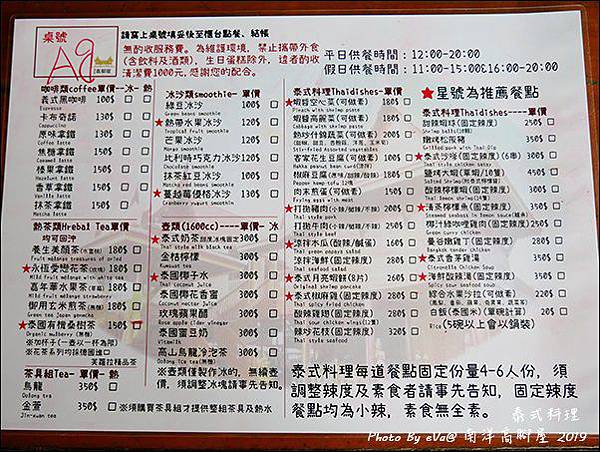 桌號
Ag
請寫上桌號填妥後至櫃台點餐、結帳
無酌收服務費。為維護環境，禁止攜帶外食
(含飲料及酒類)，生日蛋糕除外，違者酌收
清潔費1000元，感謝您的配合。
平日供餐時間：12:00-20:00
假日供餐時間：11:00-15:00&16:00-20:00
咖啡類coffee單價--冰- 熱
義式黑咖啡 100$
Espresso
卡布奇諾 130$
Cappuccino
原味拿鐵 130$
Coffee latte
焦糖拿鐵 150$
Caramel latte
榛果拿鐵 150$
Hazelnut latte
香草拿鐵 150$
Vanilla latte
抹茶拿鐵 150$
Matcha latte
熱茶類Hrebal Tea單價
均可回沖
養生美顏茶 180$
Fruit melange treasures of dried
★永恆愛戀花茶(玫瑰) 180$
Fruit melange with white tea
嘉年華水果茶(草莓) 180$
Mild fruit melange strawberry
御用玄米煎茶(無糖) 180$
Green tea Japan genmaicha
★泰國有機桑樹茶 150$
Organic mulberry (無糖)
※加杯子(一壺以一杯為限)
※花茶系列均採德國進口
芙蘿拉精品茶
茶具組Tea- 單價- 熱
烏龍 350$
Oolong tea
金萱 350$
Jin-xuan tea
※須購買茶具組才提供整組茶具及熱水
冰沙類smoothie- 單價
綠豆冰沙 100$
Green beans smoothie
★熱帶水果冰沙 120$
Tropical fruit smoothie
芒果冰沙 120$
Mango smoothie
比利時巧克力冰沙 120$
Chocolate smoothie
抹茶紅豆冰沙 130$
Matcha red beans smoothie
★蔓越莓優格冰沙 130$
Cranberry yogurt smoothie
壺類(1600cc)----單價- 冰
★泰式奶茶(甜度冰塊固定) 300$
Thai style milk black tea
金桔檸檬 300$
Kumquat tea
★泰國椰子水 350$
Thai Coconut juice
泰國椰花香蜜 300$
Coconut juice
玫瑰蘋果醋 300$
Rose apple cider vinegar
泰國蜜豆奶 300$
Vitamilk
高山烏龍冷泡茶 300$
Oolong Ice tea(無糖)
※壺類僅製作冰的，無續壺
價，須調整冰塊請事先告知。
泰式料理Thaidishes--單價
★蝦醬空心菜(可做素) 180$
Pinach with shrimp paste
蝦醬高麗菜(可做素) 180$
Cabbage with shrimp paste
熱炒什錦蔬菜(可做素) 200$
Stir-fried Assorted vegetables
客家花生豆腐(可做素) 180$
Hakka peanut bean curd
椒麻豆腐(可做素) 180$
Pepper hemp tofu 12塊
肉末煎蛋(可做素) 150$
Frying eggs with meat
★打拋豬肉 200$
Thai style pork
★打拋牛肉 200$
Thai style beef
★涼拌木瓜(酸辣/鹹蛋) 160$
Thai style papaya
涼拌海鮮(固定辣度) 280$
Thai style seafood
★泰式月亮蝦餅(8片) 280$
Original shrimp pancake
★泰式椒麻雞(固定辣度) 280$
Thai spicy fried chicken
酸辣雞翅(固定辣度) 280$
Thai sour chicken wings
辣炒花枝(固定辣度) 320$
Thai style seafood
★星號為推薦餐點
泰式料理Thaidishes----單價
甜辣蝦球(固定辣度) 250$
Shrimp balls
嫩烤松阪豬 350$
Grilled pork with Thai Dip
★泰式沙嗲(固定辣度)(6串) 350$
Thai style satay
鹽烤大蝦(草蝦)(10隻) 450$
Salted Shrimp
酸辣檸檬蝦(固定辣度) 450$
Thai lemon shrimp
★清蒸檸檬魚(固定辣度) 350$
Steamed seabass in lemon sauce
椰汁綠咖哩雞(固定辣度) 350$
Green curry chicken
曼谷嫩雞丁(固定辣度) 280$
Bangkok tender chicken
★泰式香茅雞湯 350$
Citronella Chicken Soup
★海鮮酸辣湯(固定辣度) 350$
Thai spicy seafood soup
綜合水果沙拉(可做素) 220$
白飯(泰國米)(單碗計算) 20$
Rice (5碗以上會以鍋裝)
泰式料理每道餐點固定份量4-6人份，須
調整辣度及素食者請事先告知，固定辣度
餐點均為小辣，素食無全素。
泰式料理
Photo By eVa@ 南洋高腳屋 2019